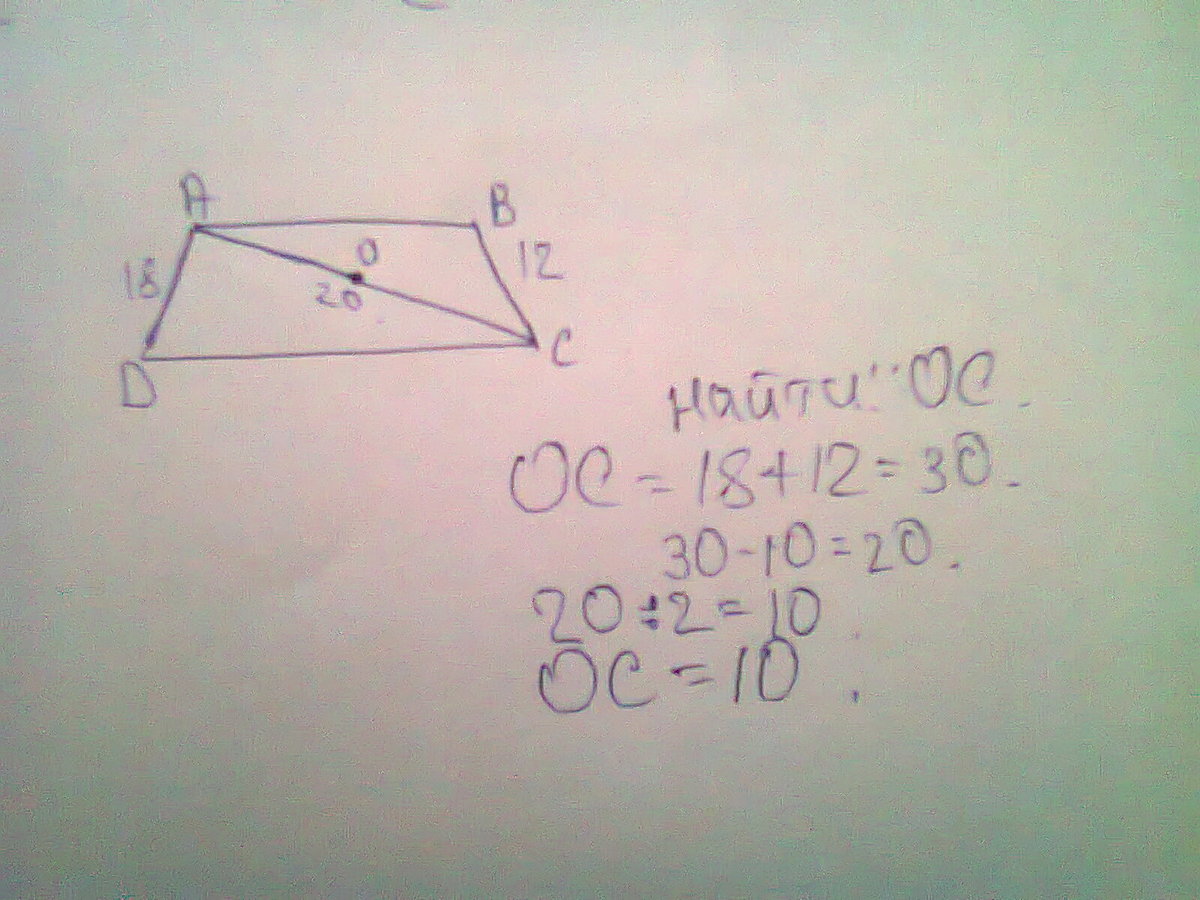 A
B
18
O
12
20
D
C
Найти: OC.
OC = 18+12=30.
30-10=20.
20÷2=10
OC=10.